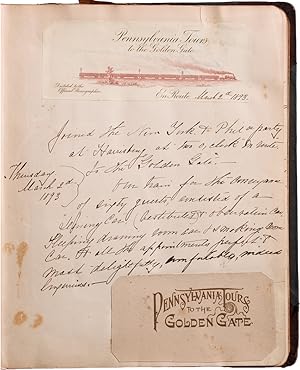 Pennsylvania Tours
to the Golden Gate
Dedicated to the
Official Stenographer.
En Route March 2nd 1893.
Joined the New York & Phil'a party
at Harrisburg at two o'clock en route
to the Golden Gate.
Thursday
March 2d
1893
Our train for the conveyance
of eighty guests consisted of a
Dining Car, Vestibuled & Observation Car
Sleeping drawing room car & smoking room
Car. All the appointments perfect &
most delightfully, comfortable, indeed
luxurious.
PENNSYLVANIA TOURS
TO THE
GOLDEN GATE.